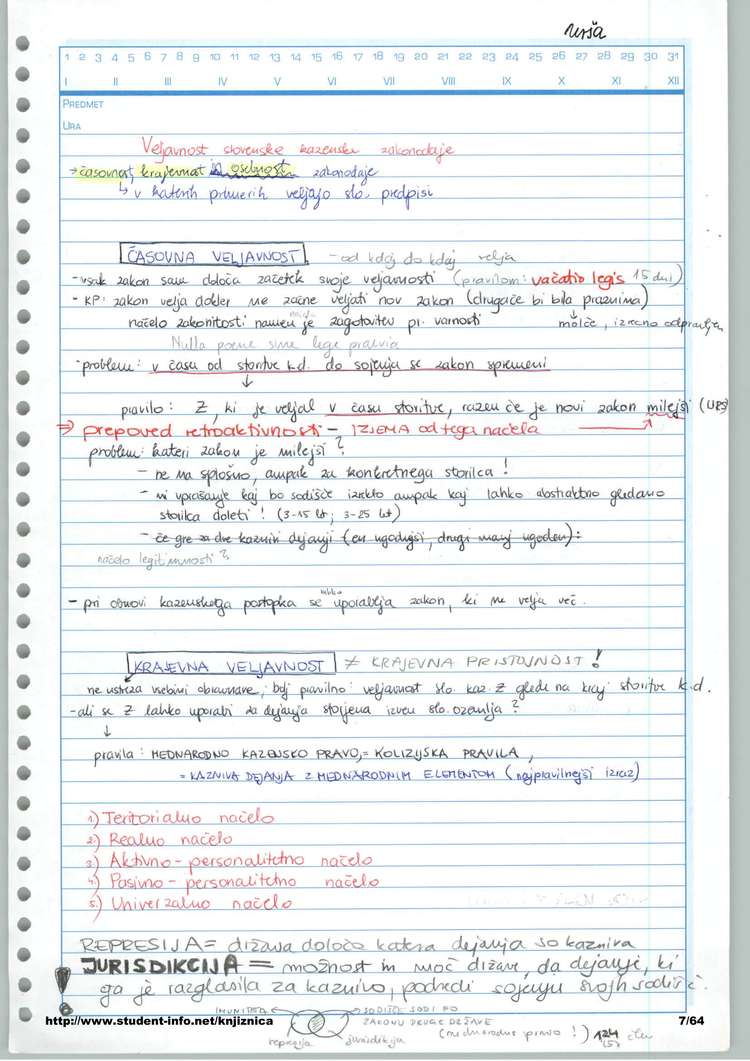 Urša
1 2 3 4 5 6 7 8 9 10 11 12 13 14 15 16 17 18 19 20 21 22 23 24 25 26 27 28 29 30 31
I II III IV V VI VII VIII IX X XI XII
PREDMET
URA
Veljavnost slovenske kazenske zakonodaje
→ časovnost, krajevnost in osebnost zakonodaje
↳ v katerih primerih veljajo slo. predpisi
ČASOVNA VELJAVNOST - od kdaj do kdaj velja
- vsak zakon sam določa začetek svoje veljavnosti (praviloma: vacatio legis 15 dni)
- KP: zakon velja dokler ne začne veljati nov zakon (drugače bi bila praznina)
načelo zakonitosti namen je zagotovitev pr. varnosti molče, izrecno odpravljen
Nulla poene sine lege praevia
- problem: v času od storitve k.d. do sojenja se zakon spremeni
↓
pravilo: Z, ki je veljal v času storitve, razen če je novi zakon milejši (URS)
⇒ prepoved retroaktivnosti - IZJEMA od tega načela
problem: kateri zakon je milejši?
- ne na splošno, ampak za konkretnega storilca!
- ni vprašanje kaj bo sodišče izreklo ampak kaj lahko abstraktno gledano
storilca doleti! (3-15 let; 3-25 let)
- če gre za dve kaznivi dejanji (en ugodnejši, drugi manj ugoden):
načelo legitimnosti?
- pri obnovi kazenskega postopka se lahko uporablja zakon, ki ne velja več.
KRAJEVNA VELJAVNOST ≠ KRAJEVNA PRISTOJNOST!
ne ustreza vsebini obravnave; bolj pravilno: veljavnost slo. kaz. Z glede na kraj storitve k.d.
- ali se Z lahko uporabi za dejanja storjena izven slo. ozemlja?
↓
pravila: MEDNARODNO KAZENSKO PRAVO, = KOLIZIJSKA PRAVILA,
= KAZNIVA DEJANJA Z MEDNARODNIM ELEMENTOM (najpravilnejši izraz)
1.) Teritorialno načelo
2.) Realno načelo
3.) Aktivno - personalitetno načelo
4.) Pasivno - personalitetno načelo
5.) Univerzalno načelo
REPRESIJA = država določa katera dejanja so kazniva
JURISDIKCIJA = možnost in moč države, da dejanje, ki
ga je razglasila za kaznivo, podredi sojenju svojih sodišč.
IMUNITETA SODIŠČE SODI PO
http://www.student-info.net/knjiznica ZAKONU DRUGE DRŽAVE 7/64
represija jurisdikcija (mednarodno pravo!) 124 člen